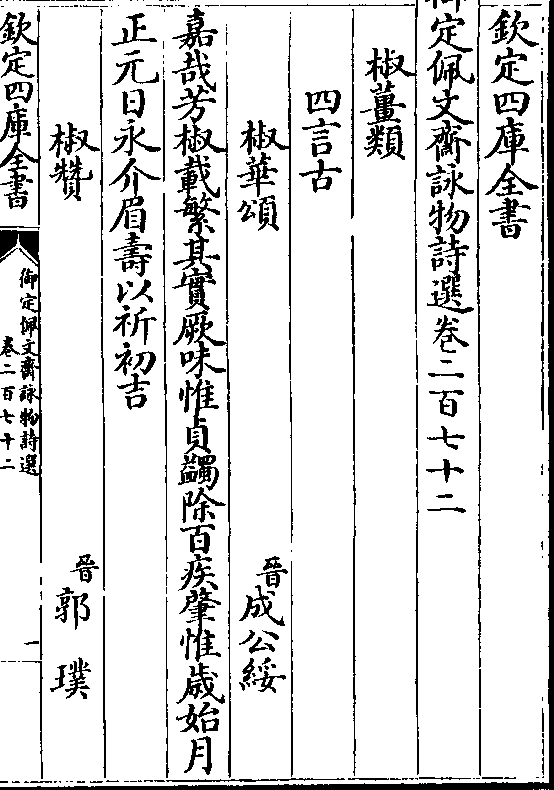 欽定四庫全書
御定佩文齋詠物詩選卷二百七十二
椒薑類
四言古
椒華頌 晉成公綏
嘉哉芳椒載繁其實厥味惟貞蠲除百疾肇惟歲始月
正元日永介眉壽以祈初吉
椒贊 晉郭璞
欽定四庫全書
御定佩文齋詠物詩選
卷二百七十二
一